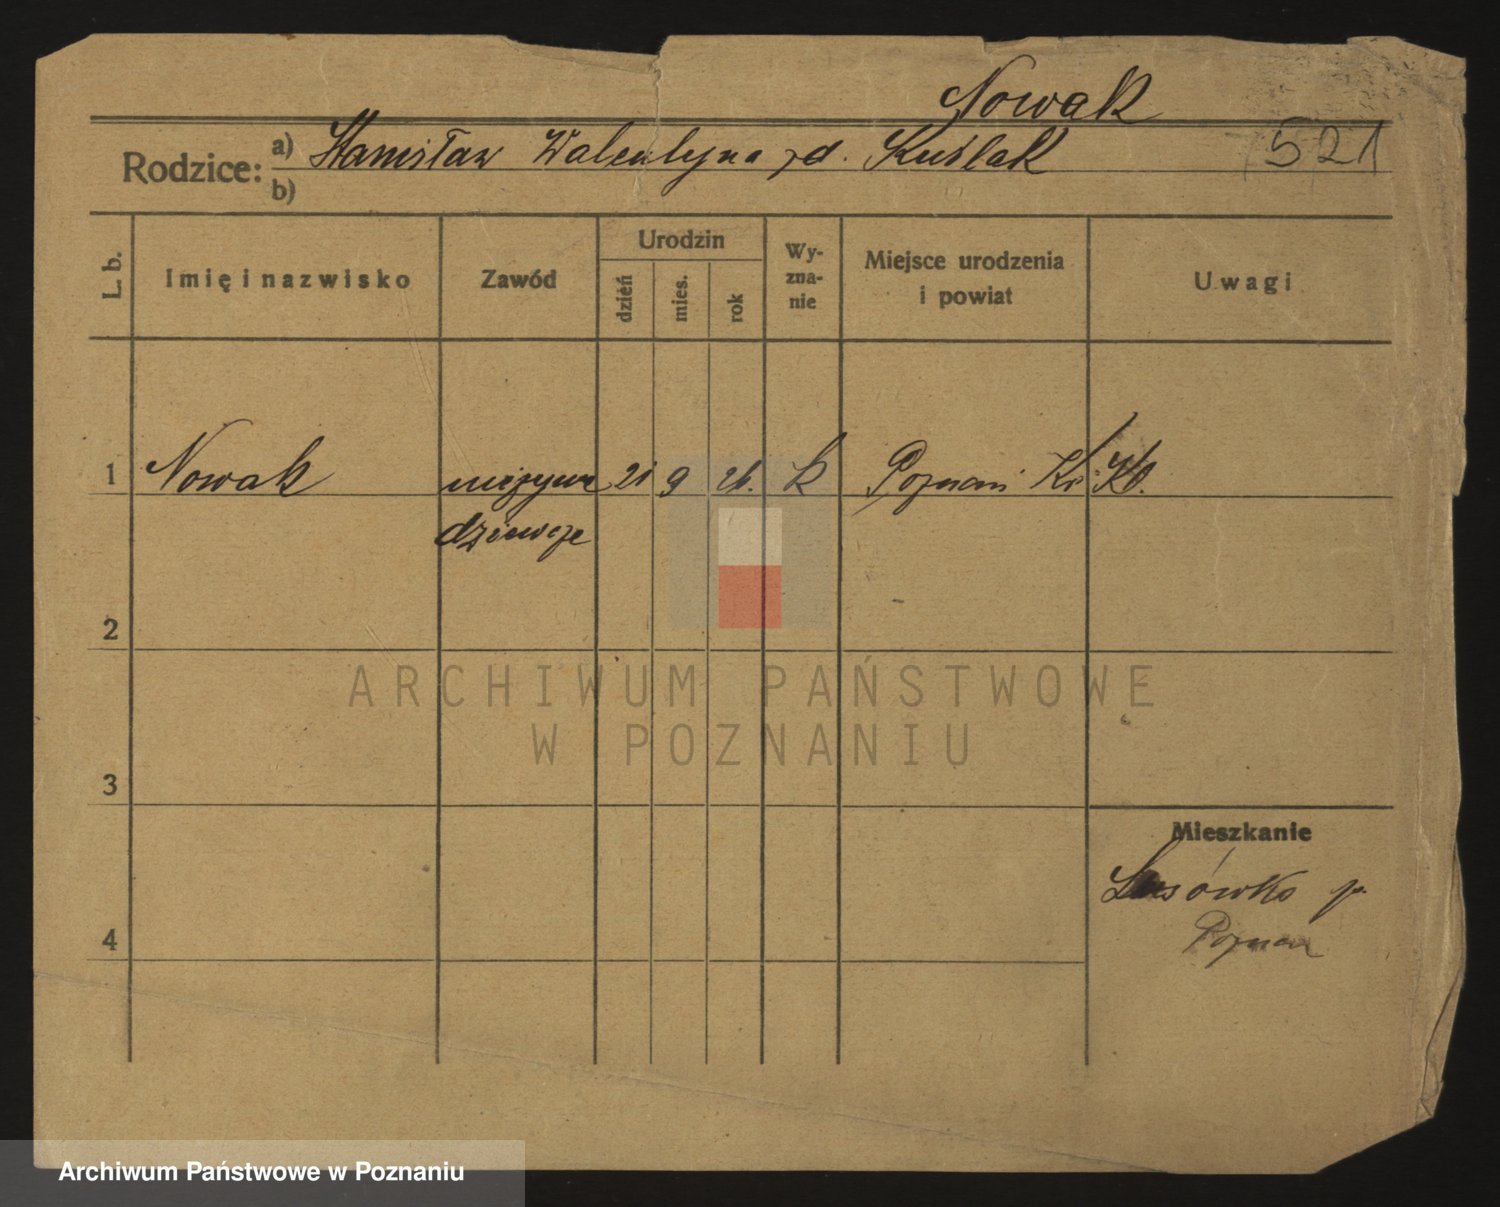 Nowak
521
Rodzice: a) Stanisław Walentyna zd. Kuślak
b)
L. b.
Imię i nazwisko
Zawód
Urodzin
dzień
mies.
rok
Wy-
zna-
nie
Miejsce urodzenia
i powiat
Uwagi
1 Nowak nieżywe 21 9 26. k Poznań
dziewczę
2
3
4
Mieszkanie
Lusówko p.
Poznań
ARCHIWUM PAŃSTWOWE
W POZNANIU
Archiwum Państwowe w Poznaniu